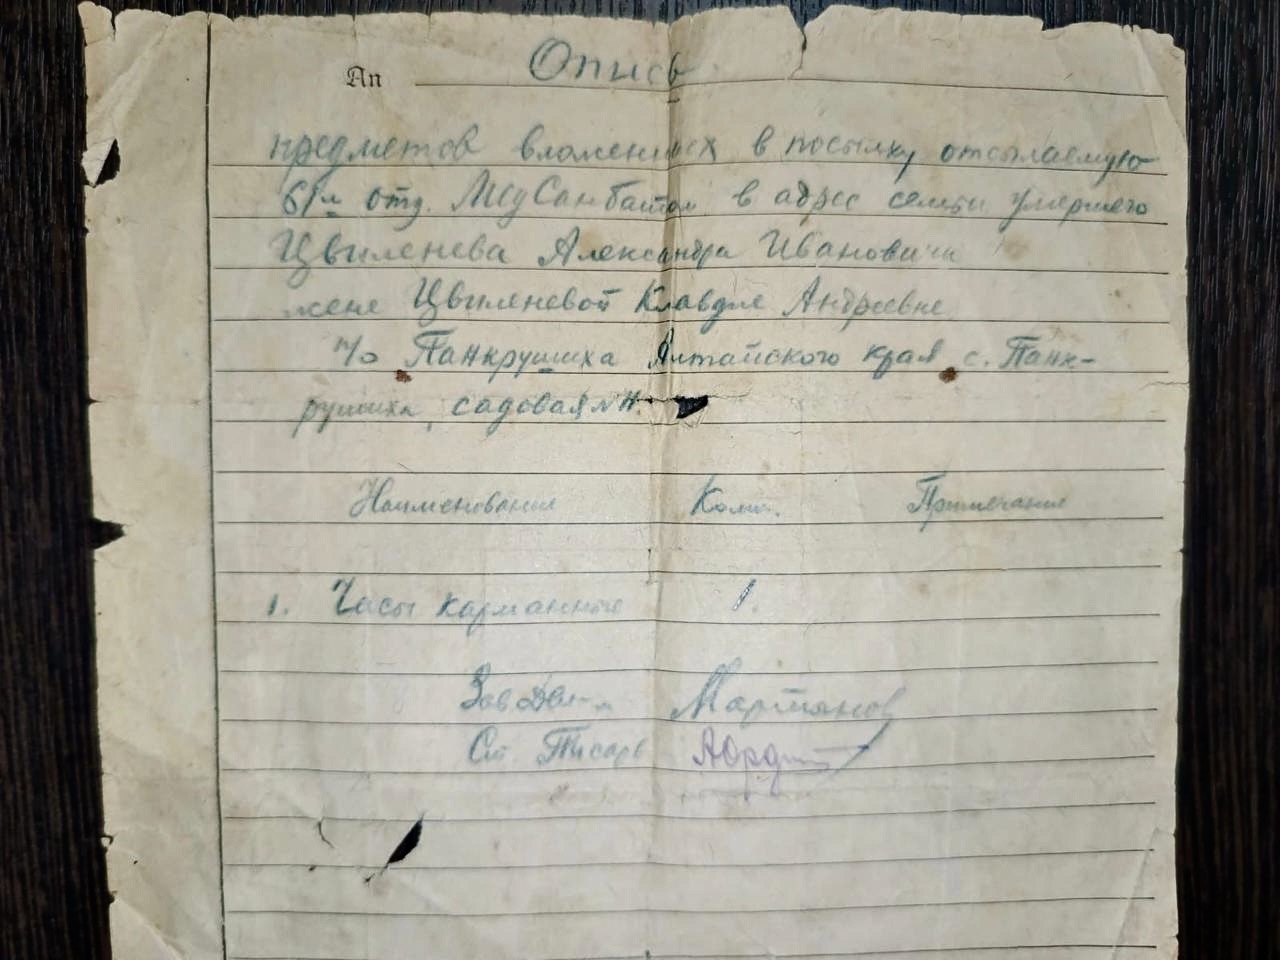 An Опись
предметов вложенных в посылку отсылаемую
61м отд. МедСанбатом в адрес семьи умершего
Цвиленева Александра Ивановича
жене Цвиленевой Клавдие Андреевне
п/о Панкрушиха Алтайского края с. Панк-
рушиха, садовая №
Наименование Колич. Примечание
1. Часы карманные 1.
Зав Мартынов
Ст. Писарь